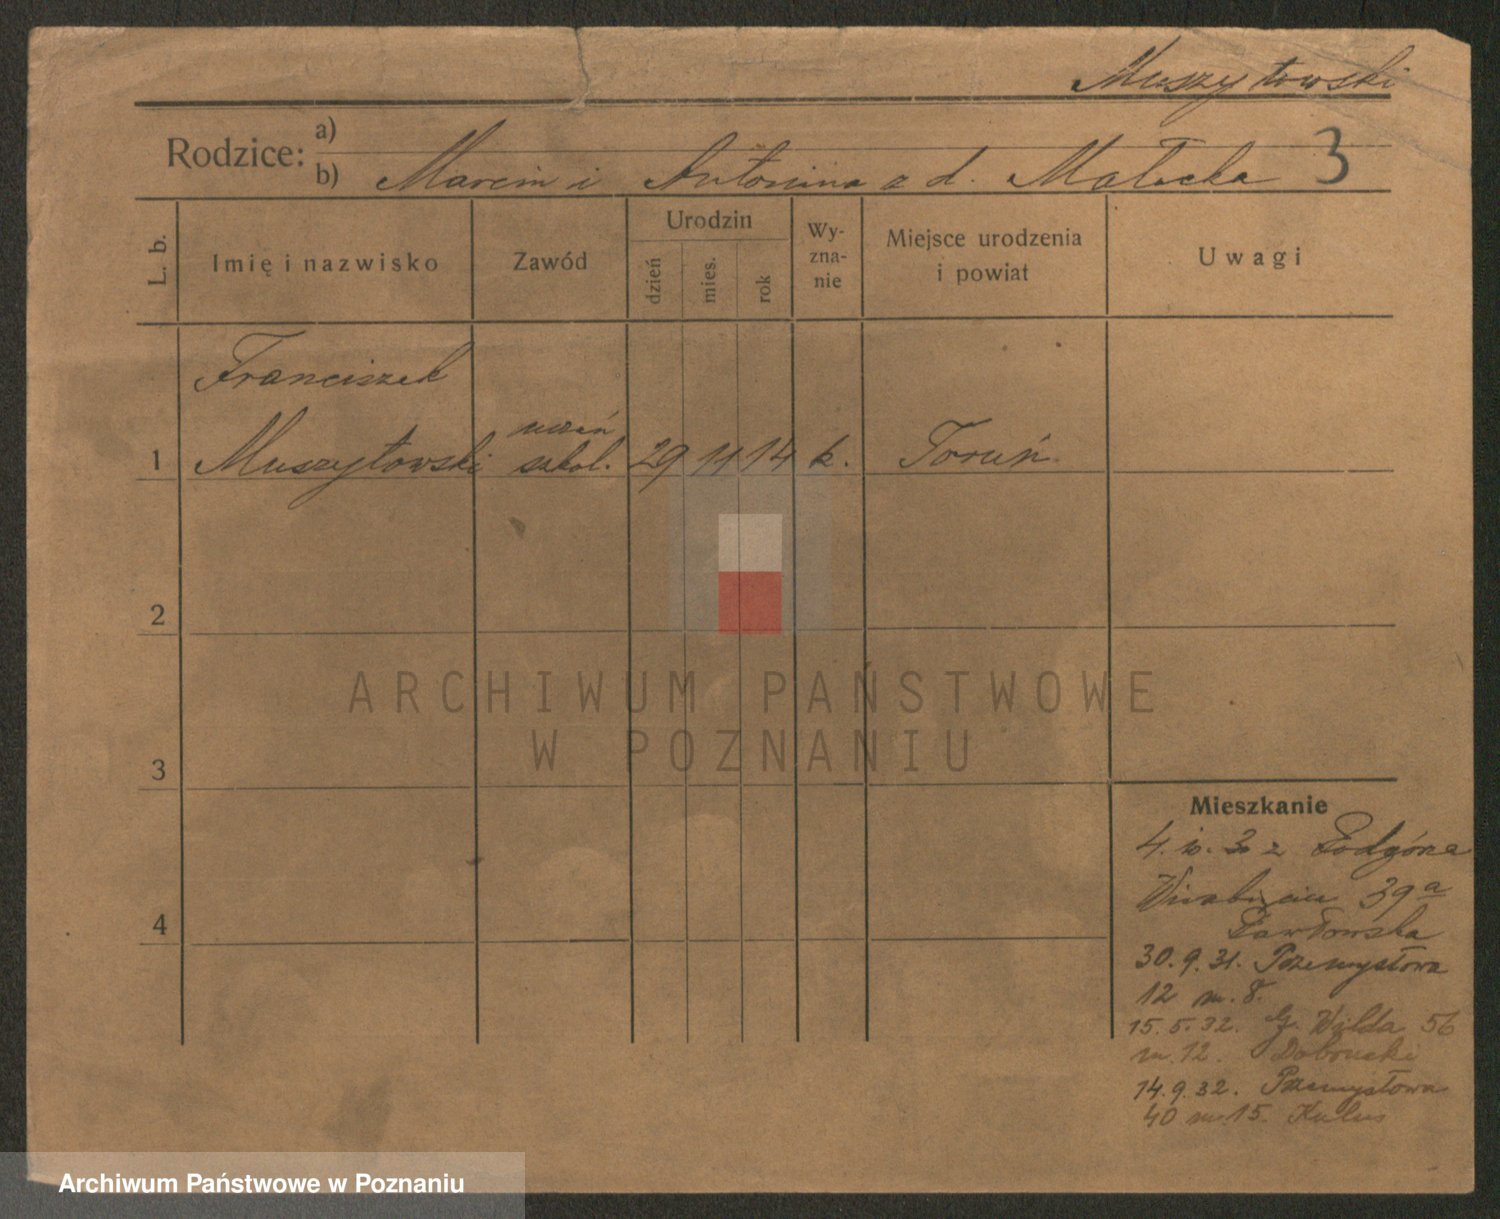 Muszytowski
Rodzice:
a)
b) Marcin i Antonina z d. Małecka 3
L. b.
Imię i nazwisko
Zawód
Urodzin
dzień
mies.
rok
Wy-
zna-
nie
Miejsce urodzenia
i powiat
Uwagi
Franciszek
uczeń
1 Muszytowski szkol. 29 11 14 k. Toruń
2
3
4
ARCHIWUM PAŃSTWOWE
W POZNANIU
Mieszkanie
Podgórna
39a
Pawłowska
30.9.31. Przemysłowa
12 m. 8.
15.5.32. G. Wilda 56
m. 12. Dobrucki
14.9.32. Przemysłowa
40 m. 15. Kulus
Archiwum Państwowe w Poznaniu